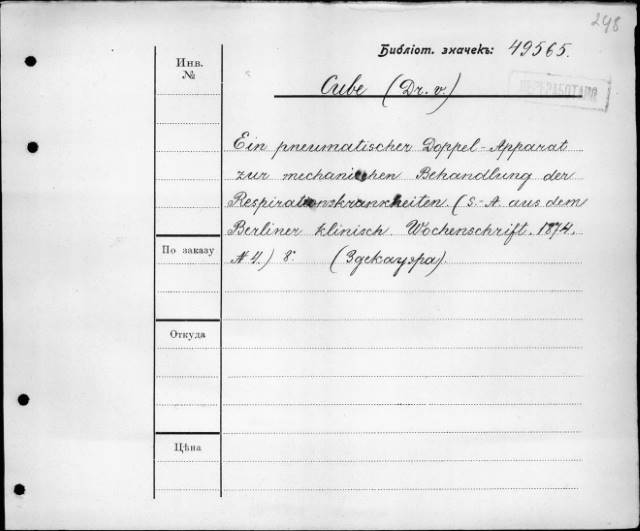 298
Библіот. значекъ: 49565.
ПЕРЕРАБОТАНО
Инв.
№
Cube (Dr. v.)
Ein pneumatischer Doppel-Apparat
zur mechanischen Behandlung der
Respirationskrankheiten. (S.-A. aus dem
Berliner klinisch. Wochenschrift. 1874.
№ 4.) 8°. (Здекауэра).
По заказу
Откуда
Цѣна